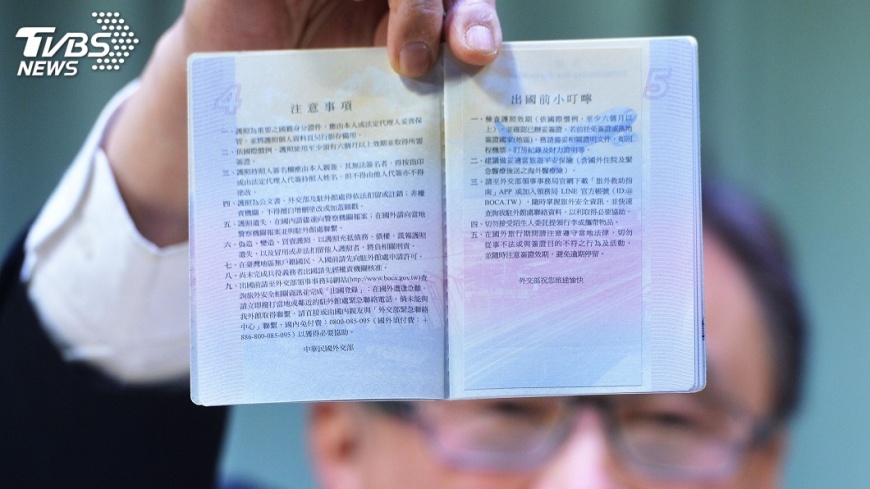 TVBS
NEWS
4
注意事項
一、護照為重要之國籍身分證件，應由本人或法定代理人妥善保
管，並將護照個人資料頁另行影存備用。
二、依國際慣例，護照使用至少須有六個月以上效期並取得所需
簽證。
三、護照持照人簽名欄應由本人親簽，其無法簽名者，得按指印
或由法定代理人代簽持照人姓名，但不得由他人代簽亦不得
塗改。
四、護照為公文書，外交部及駐外館處得依法扣留或註銷；非權
責機關，不得擅自增刪塗改或加蓋圖戳。
五、護照遺失，在國內請儘速向警察機關報案；在國外請向當地
警察機關報案並與駐外館處聯繫。
六、偽造、變造、買賣護照，以護照充抵債務、債權，謊報護照
遺失，以及冒用或非法扣留他人護照者，將負相關刑責。
七、在臺灣地區無戶籍國民，入國前請先向駐外館處申請許可。
八、尚未完成兵役義務者出國請先經權責機關核准。
九、出國前請至外交部領事事務局網站(http://www.boca.gov.tw)查
詢旅外安全相關資訊並完成「出國登錄」；在國外遭逢急難，
請立即撥打當地或鄰近的駐外館處緊急聯絡電話，倘未能與
我外館取得聯繫，請直接或由國內親友與「外交部緊急聯絡
中心」聯繫，國內免付費：0800-085-095（國外須付費：+
886-800-085-095）以獲得必要協助。
中華民國外交部
5
出國前小叮嚀
一、檢查護照效期（依國際慣例，至少六個月以
上），並確認已辦妥簽證。若前往免簽證或落地
簽證處家（地區），務請備妥相關證明文件，如回
程機票、訂房紀錄及財力證明等。
二、建議備妥適當旅遊平安保險（含國外住院及緊
急醫療後送之海外醫療險）。
三、請至外交部領事事務局官網下載「旅外救助指
南」APP或加入領務局 LINE 官方帳號（ID:@
BOCA.TW），隨時掌握旅外安全資訊，並快速
查詢我駐外館處聯絡資料，以利取得必要協助。
四、切勿接受陌生人委託提領行李或攜帶物品。
五、在國外旅行期間請注意遵守當地法律，切勿
從事不法或與簽證目的不符之行為及活動，
並隨時注意簽證效期，避免逾期停留。
外交部祝您旅途愉快